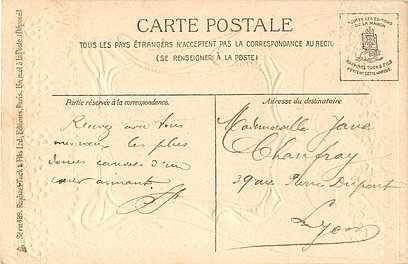 CARTE POSTALE
TOUS LES PAYS ÉTRANGERS N'ACCEPTENT PAS LA CORRESPONDANCE AU RECTO
(SE RENSEIGNER À LA POSTE)
TOUTES LES EDITIONS
DE LA MAISON
RAPHAEL TUCK & FILS
PORTENT CETTE MARQUE
Partie réservée à la correspondance.
Recevez avec tous
mes vœux les plus
douces caresses d'un
cœur aimant.
Adresse du destinataire
Mademoiselle Jane
Chaufray
39 rue Pierre Dupont
Lyon
Série 489. Raphael Tuck & Fils Ltd, Editeurs, Paris. Un mot à la Poste (Déposé)